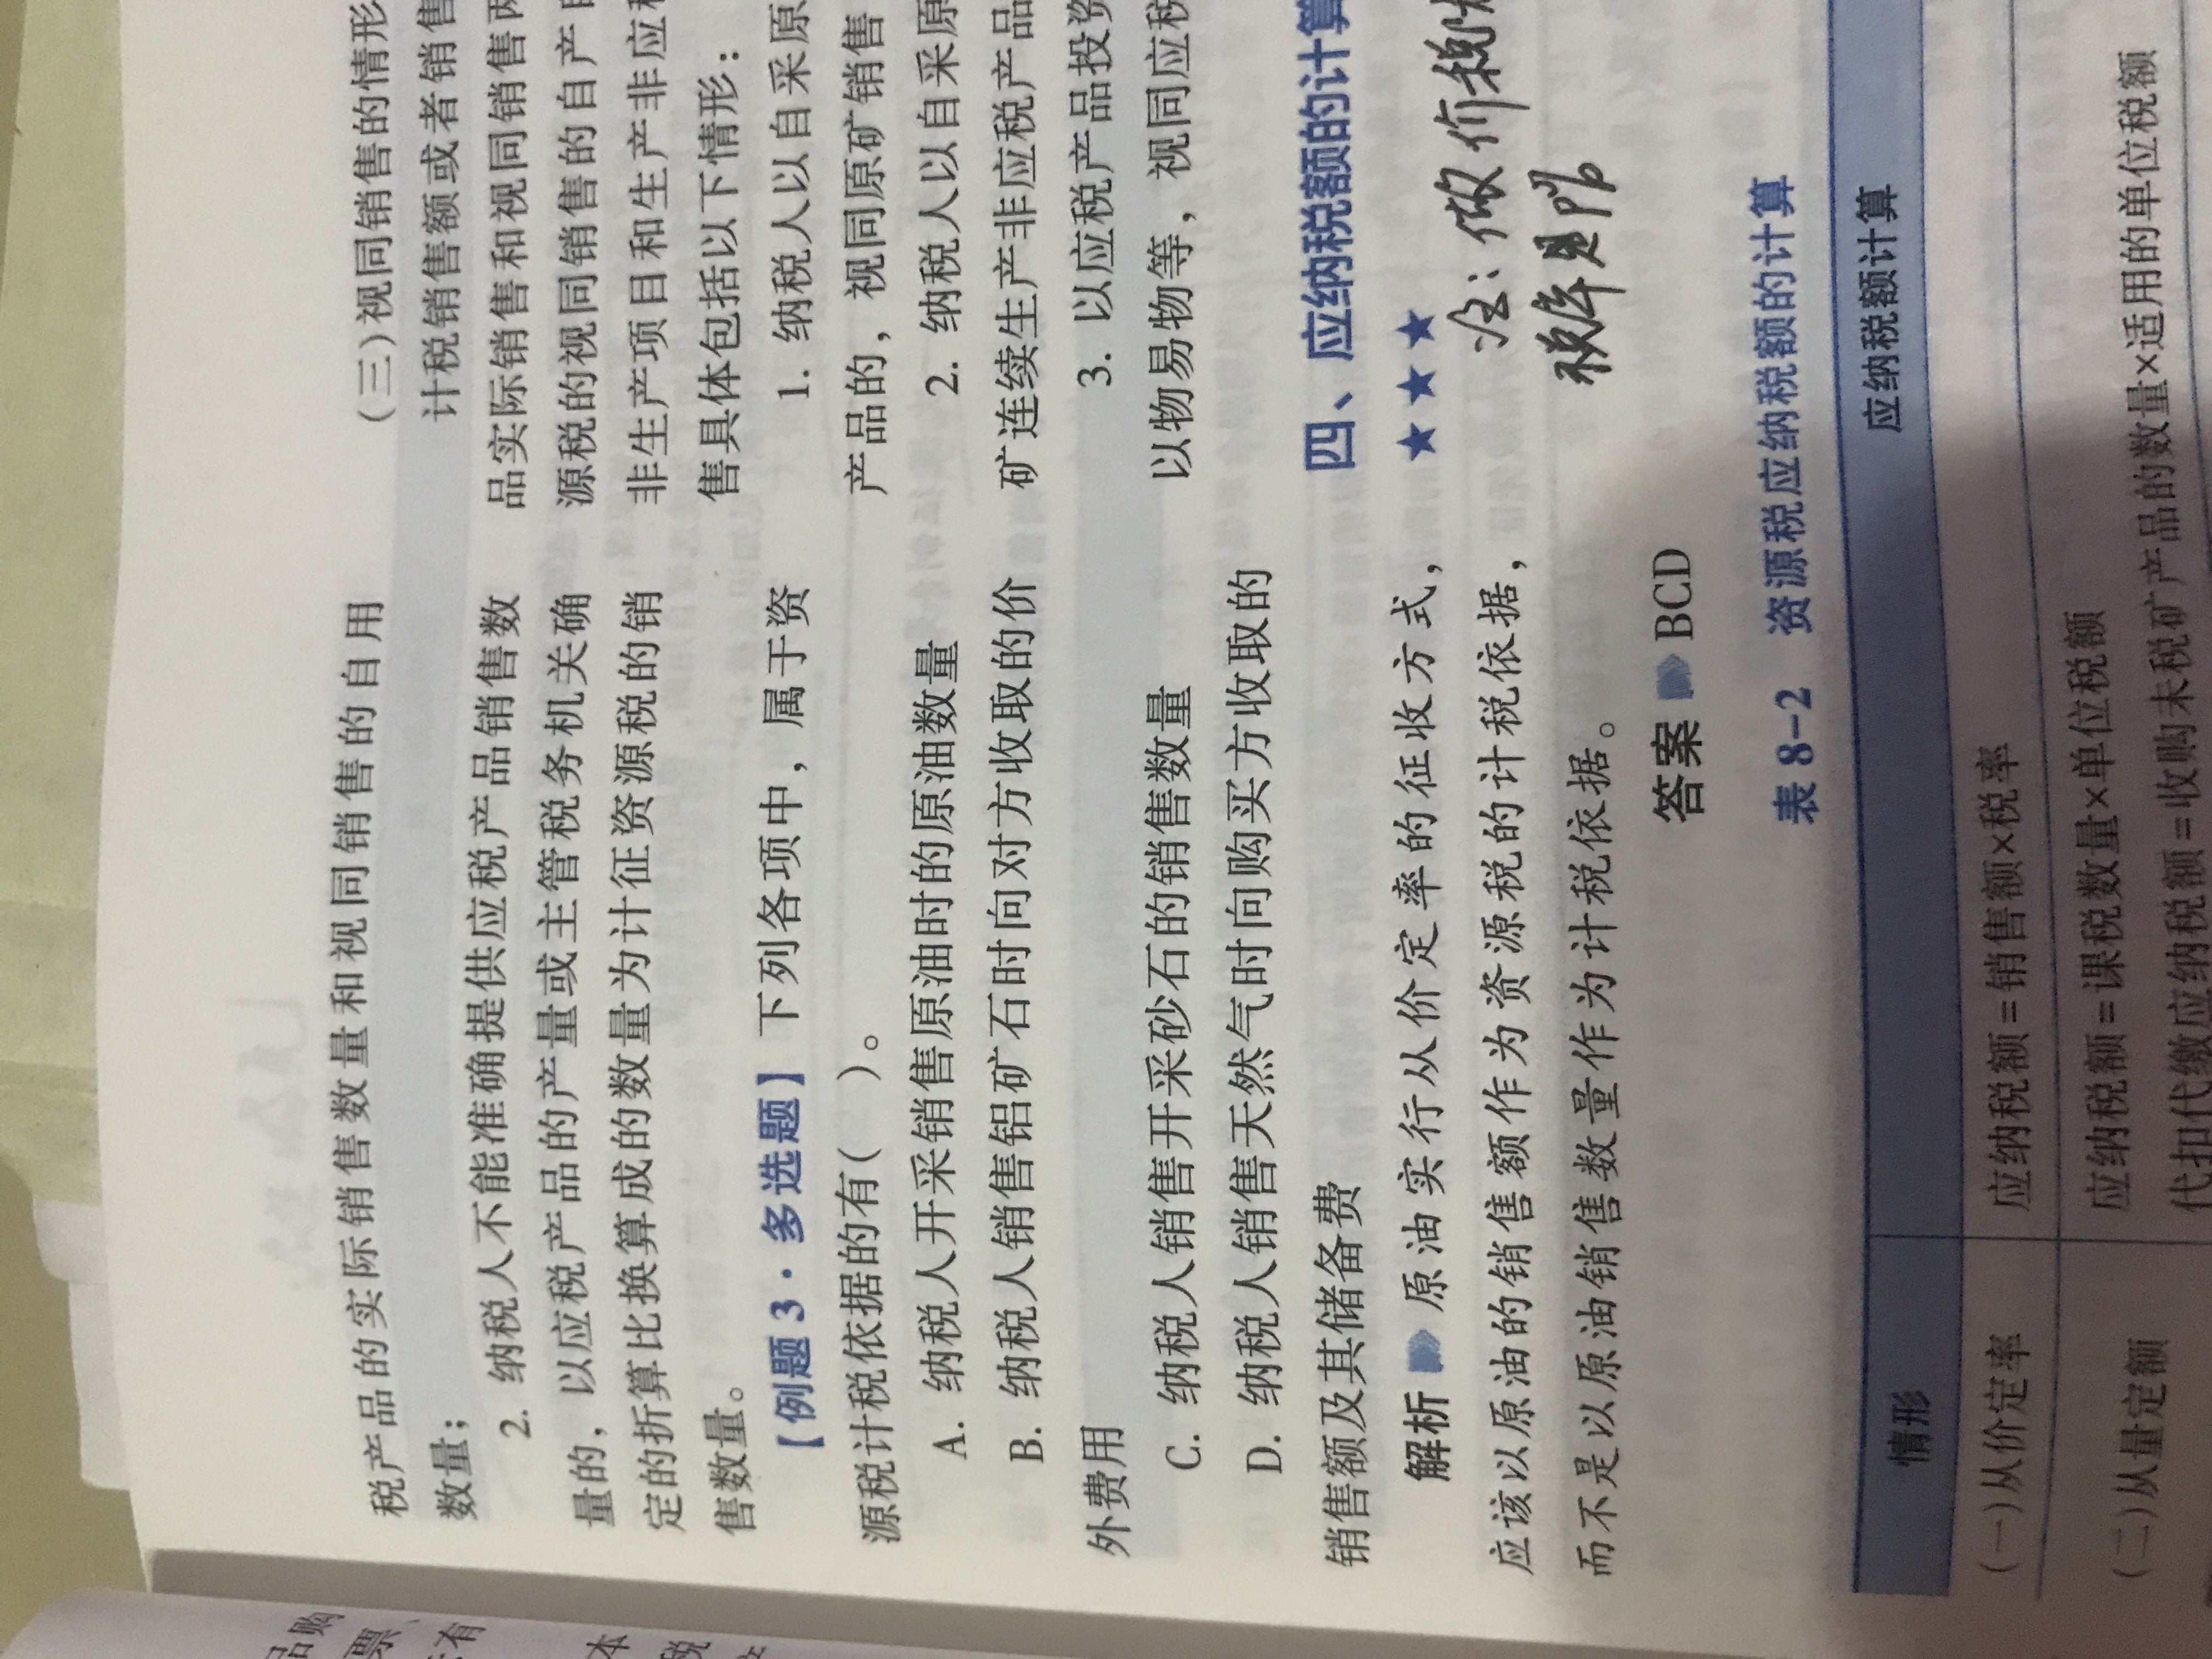 税产品的实际销售数量和视同销售的自用
数量；
2. 纳税人不能准确提供应税产品销售数
量的，以应税产品的产量或主管税务机关确
定的折算比换算成的数量为计征资源税的销
售数量。
【例题 3·多选题】下列各项中，属于资
源税计税依据的有(　　)。
A. 纳税人开采销售原油时的原油数量
B. 纳税人销售铝矿石时向对方收取的价
外费用
C. 纳税人销售开采砂石的销售数量
D. 纳税人销售天然气时向购买方收取的
销售额及其储备费
解析 原油实行从价定率的征收方式，
应该以原油的销售额作为资源税的计税依据，
而不是以原油销售数量作为计税依据。
答案 BCD
(三)视同销售的情形
计税销售额或者销售
品实际销售和视同销售两
源税的视同销售的自产自
非生产项目和生产非应税
售具体包括以下情形：
1. 纳税人以自采原
产品的，视同原矿销售
2. 纳税人以自采原
矿连续生产非应税产品
3. 以应税产品投资
以物易物等，视同应税
四、应纳税额的计算
★★★
注：做价税
税率是
表 8-2 资源税应纳税额的计算
情形 应纳税额计算
(一)从价定率 应纳税额=销售额×税率
(二)从量定额 应纳税额=课税数量×单位税额
代扣代缴应纳税额=收购未税矿产品的数量×适用的单位税额
品购
票、
有
本
税